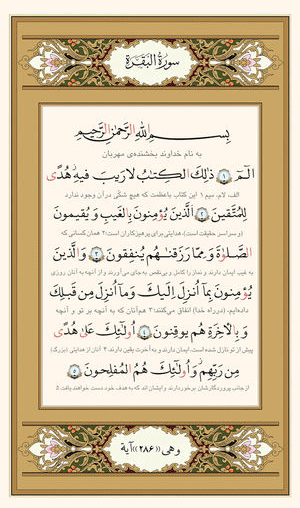 سورة البقرة
بِسْمِ اللهِ الرَّحْمٰنِ الرَّحِيمِ
به نام خداوند بخشنده‌ی مهربان
الٓمٓ ۱ ذٰلِكَ الْكِتَابُ لَارَيْبَ فِيهِ هُدًى
الف، لام، میم ۱ این کتاب باعظمت که هیچ شکّی در آن وجود ندارد
لِلْمُتَّقِينَ ۲ الَّذِينَ يُؤْمِنُونَ بِالْغَيْبِ وَ يُقِيمُونَ
(و سراسر حقیقت است)، هدایتی برای پرهیزکاران است؛ ۲ همان کسانی که
الصَّلَاةَ وَ مِمَّا رَزَقْنٰهُمْ يُنفِقُونَ ۳ وَالَّذِينَ
به غیب ایمان دارند و نماز را کامل و بی‌نقص به‌جای می‌آورند و از آنچه به آنان روزی
يُؤْمِنُونَ بِمَآ أُنزِلَ إِلَيْكَ وَ مَآ أُنزِلَ مِن قَبْلِكَ
داده‌ایم، (در راه خدا) انفاق می‌کنند؛ ۳ هم‌آنان که به آنچه بر تو و آنچه
وَ بِالْآخِرَةِ هُمْ يُوقِنُونَ ۴ أُولٰٓئِكَ عَلىٰ هُدًى
پیش از تو نازل شده است، ایمان دارند و به آخرت یقین دارند. ۴ آنان از هدایتی (بزرگ)
مِن رَبِّهِمْ وَ أُولٰٓئِكَ هُمُ الْمُفْلِحُونَ ۵
از جانب پروردگارشان برخوردارند و ایشان‌اند که به هدف خود دست خواهند یافت. ۵
وهی ((۲۸۶)) آیة